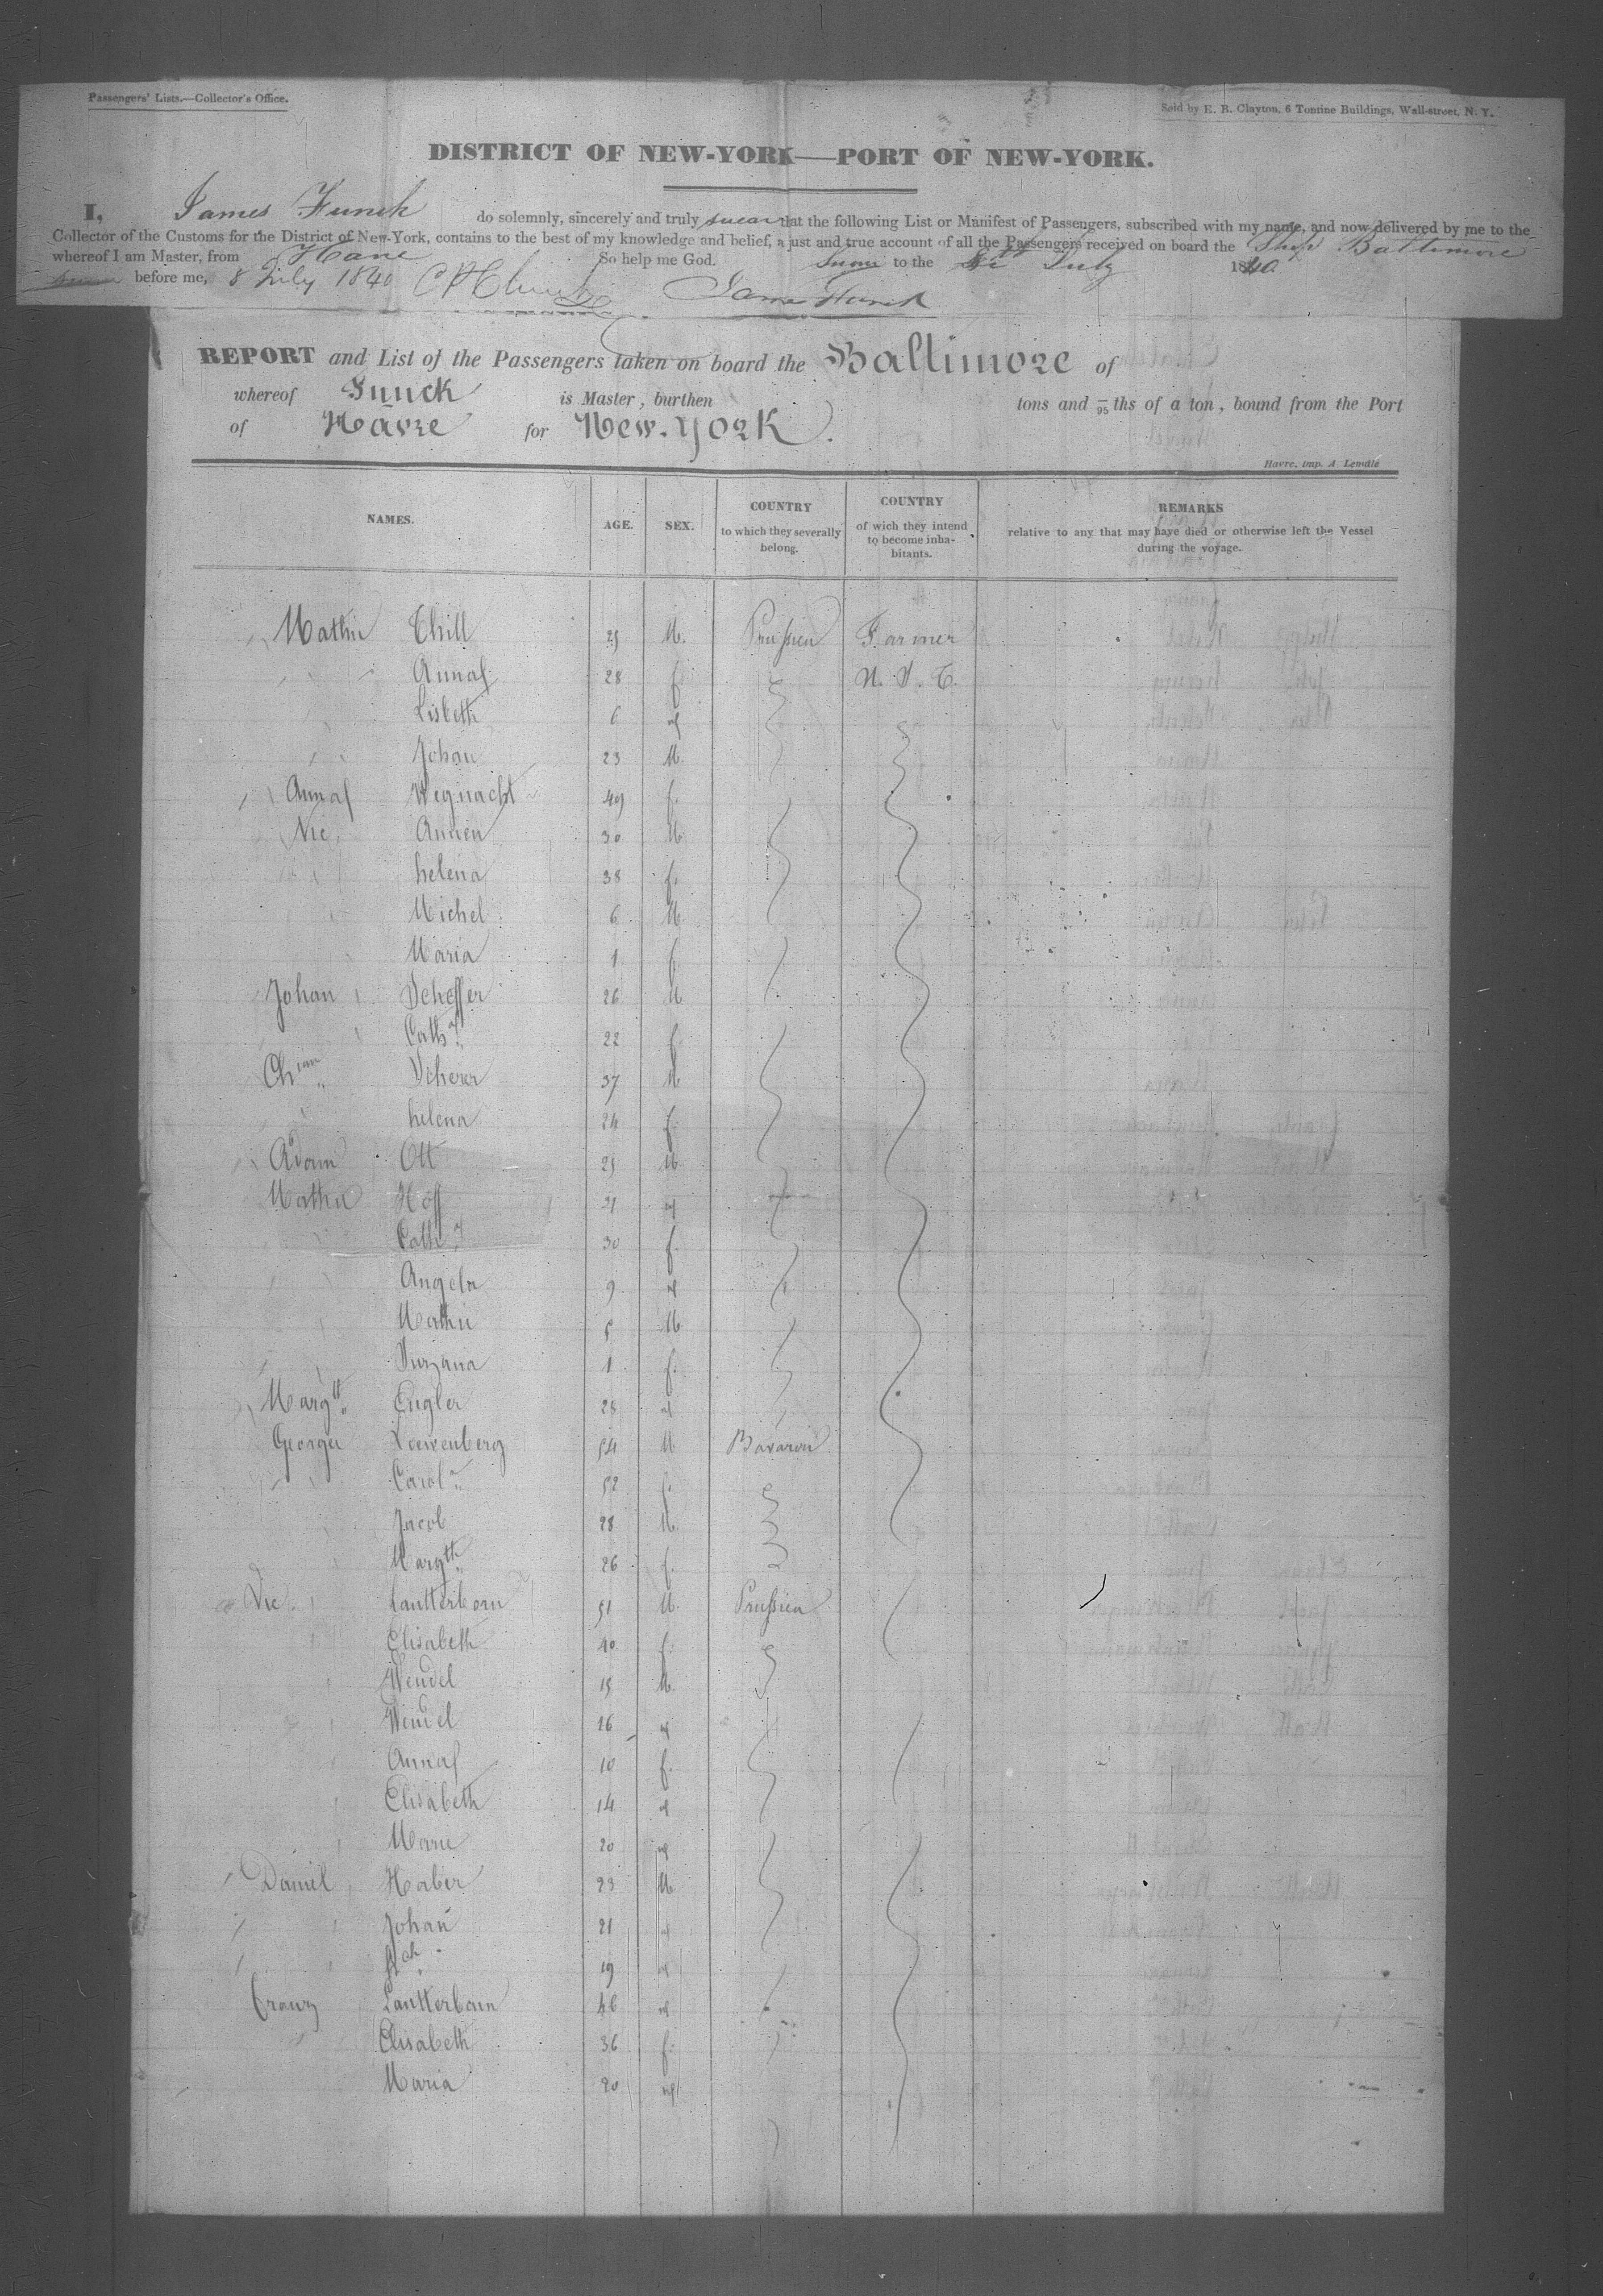 Passengers' Lists.—Collector's Office.
Sold by E. B. Clayton, 6 Tontine Buildings, Wall-street, N. Y.
DISTRICT OF NEW-YORK—PORT OF NEW-YORK.
I, James Funck do solemnly, sincerely and truly swear that the following List or Manifest of Passengers, subscribed with my name, and now delivered by me to the
Collector of the Customs for the District of New-York, contains to the best of my knowledge and belief, a just and true account of all the Passengers received on board the Ship Baltimore
whereof I am Master, from Havre So help me God. Sworn to the July 1840
before me, 8 July 1840 James Funck
REPORT and List of the Passengers taken on board the Baltimore of
whereof Funck is Master, burthen tons and /95 ths of a ton, bound from the Port
of Havre for New-York.
Havre, imp. A Lemâle
NAMES. AGE. SEX. COUNTRY to which they severally belong. COUNTRY of wich they intend to become inha-bitants. REMARKS relative to any that may have died or otherwise left the Vessel during the voyage.
Mathie Thill 25 M. Prussien Farmer
" " Annas 28 f U. S. T.
" Lisbeth 6 "
" " Johan 23 M.
Annas Wegnacht 49 f.
Nic. Annen 30 M
" " helena 38 f.
" Michel 6 M.
" Maria 1 f.
Johan Scheffer 26 M
" Cath.ª 22 f.
Ch.ian Scherer 37 M
" " helena 24 f.
Adam Ott 25 M
Mathie Hoff 31 "
" " Cath.ª 30 f.
" " Angela 9 "
" Mathie 5 M
" " Suzana 1 f.
Marg.tt Engler 28 "
George Loewenberg 54 M Bavaroi
" " Carol.ª 52 f.
" Jacob 28 M.
" Marg.tt 26 f.
Nic. Lautterborn 51 M. Prussien
" Elisabeth 40 f.
" Wendel 15 M.
" Wendel 16 "
Annas 10 f.
" Elisabeth 14 "
" Marie 20 "
Daniel Haber 23 M
" " Johan 21 "
" " 19 "
Franz Lautterborn 46 "
" Elisabeth 36 f.
Maria 20 "